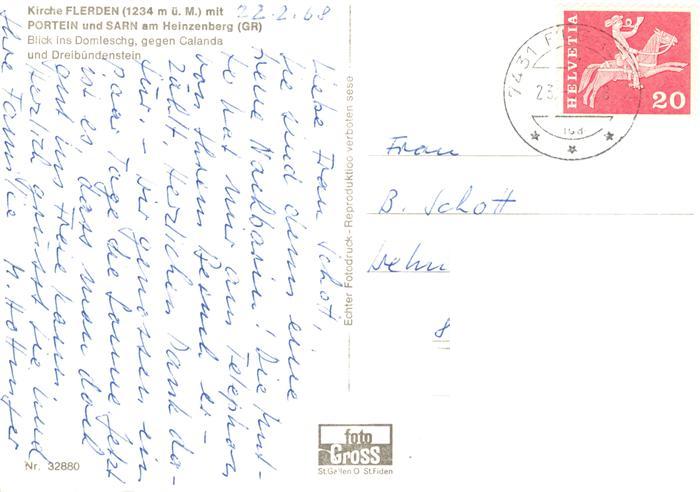 Kirche FLERDEN (1234 m ü. M.) mit
PORTEIN und SARN am Heinzenberg (GR)
Blick ins Domleschg, gegen Calanda
und Dreibündenstein
22.2.68
Liebe Frau Schott,
Sie sind denn eine
neue Nachbarin! Die
te hat mir am Telephon
von Ihrem Besuch er-
zählt, Herzlichen Dank da-
für. – Wir genossen ein
paar Tage die Sonne, jetzt
ist es, dass man doch
ins Freie kann
Herzlich grüsst Sie und
Ihre Familie
Nr. 32880
Echter Fotodruck - Reproduktion verboten
foto
Gross
St.Gallen O St.Fiden
HELVETIA
20
7431
23.
Frau
B. Schott
8